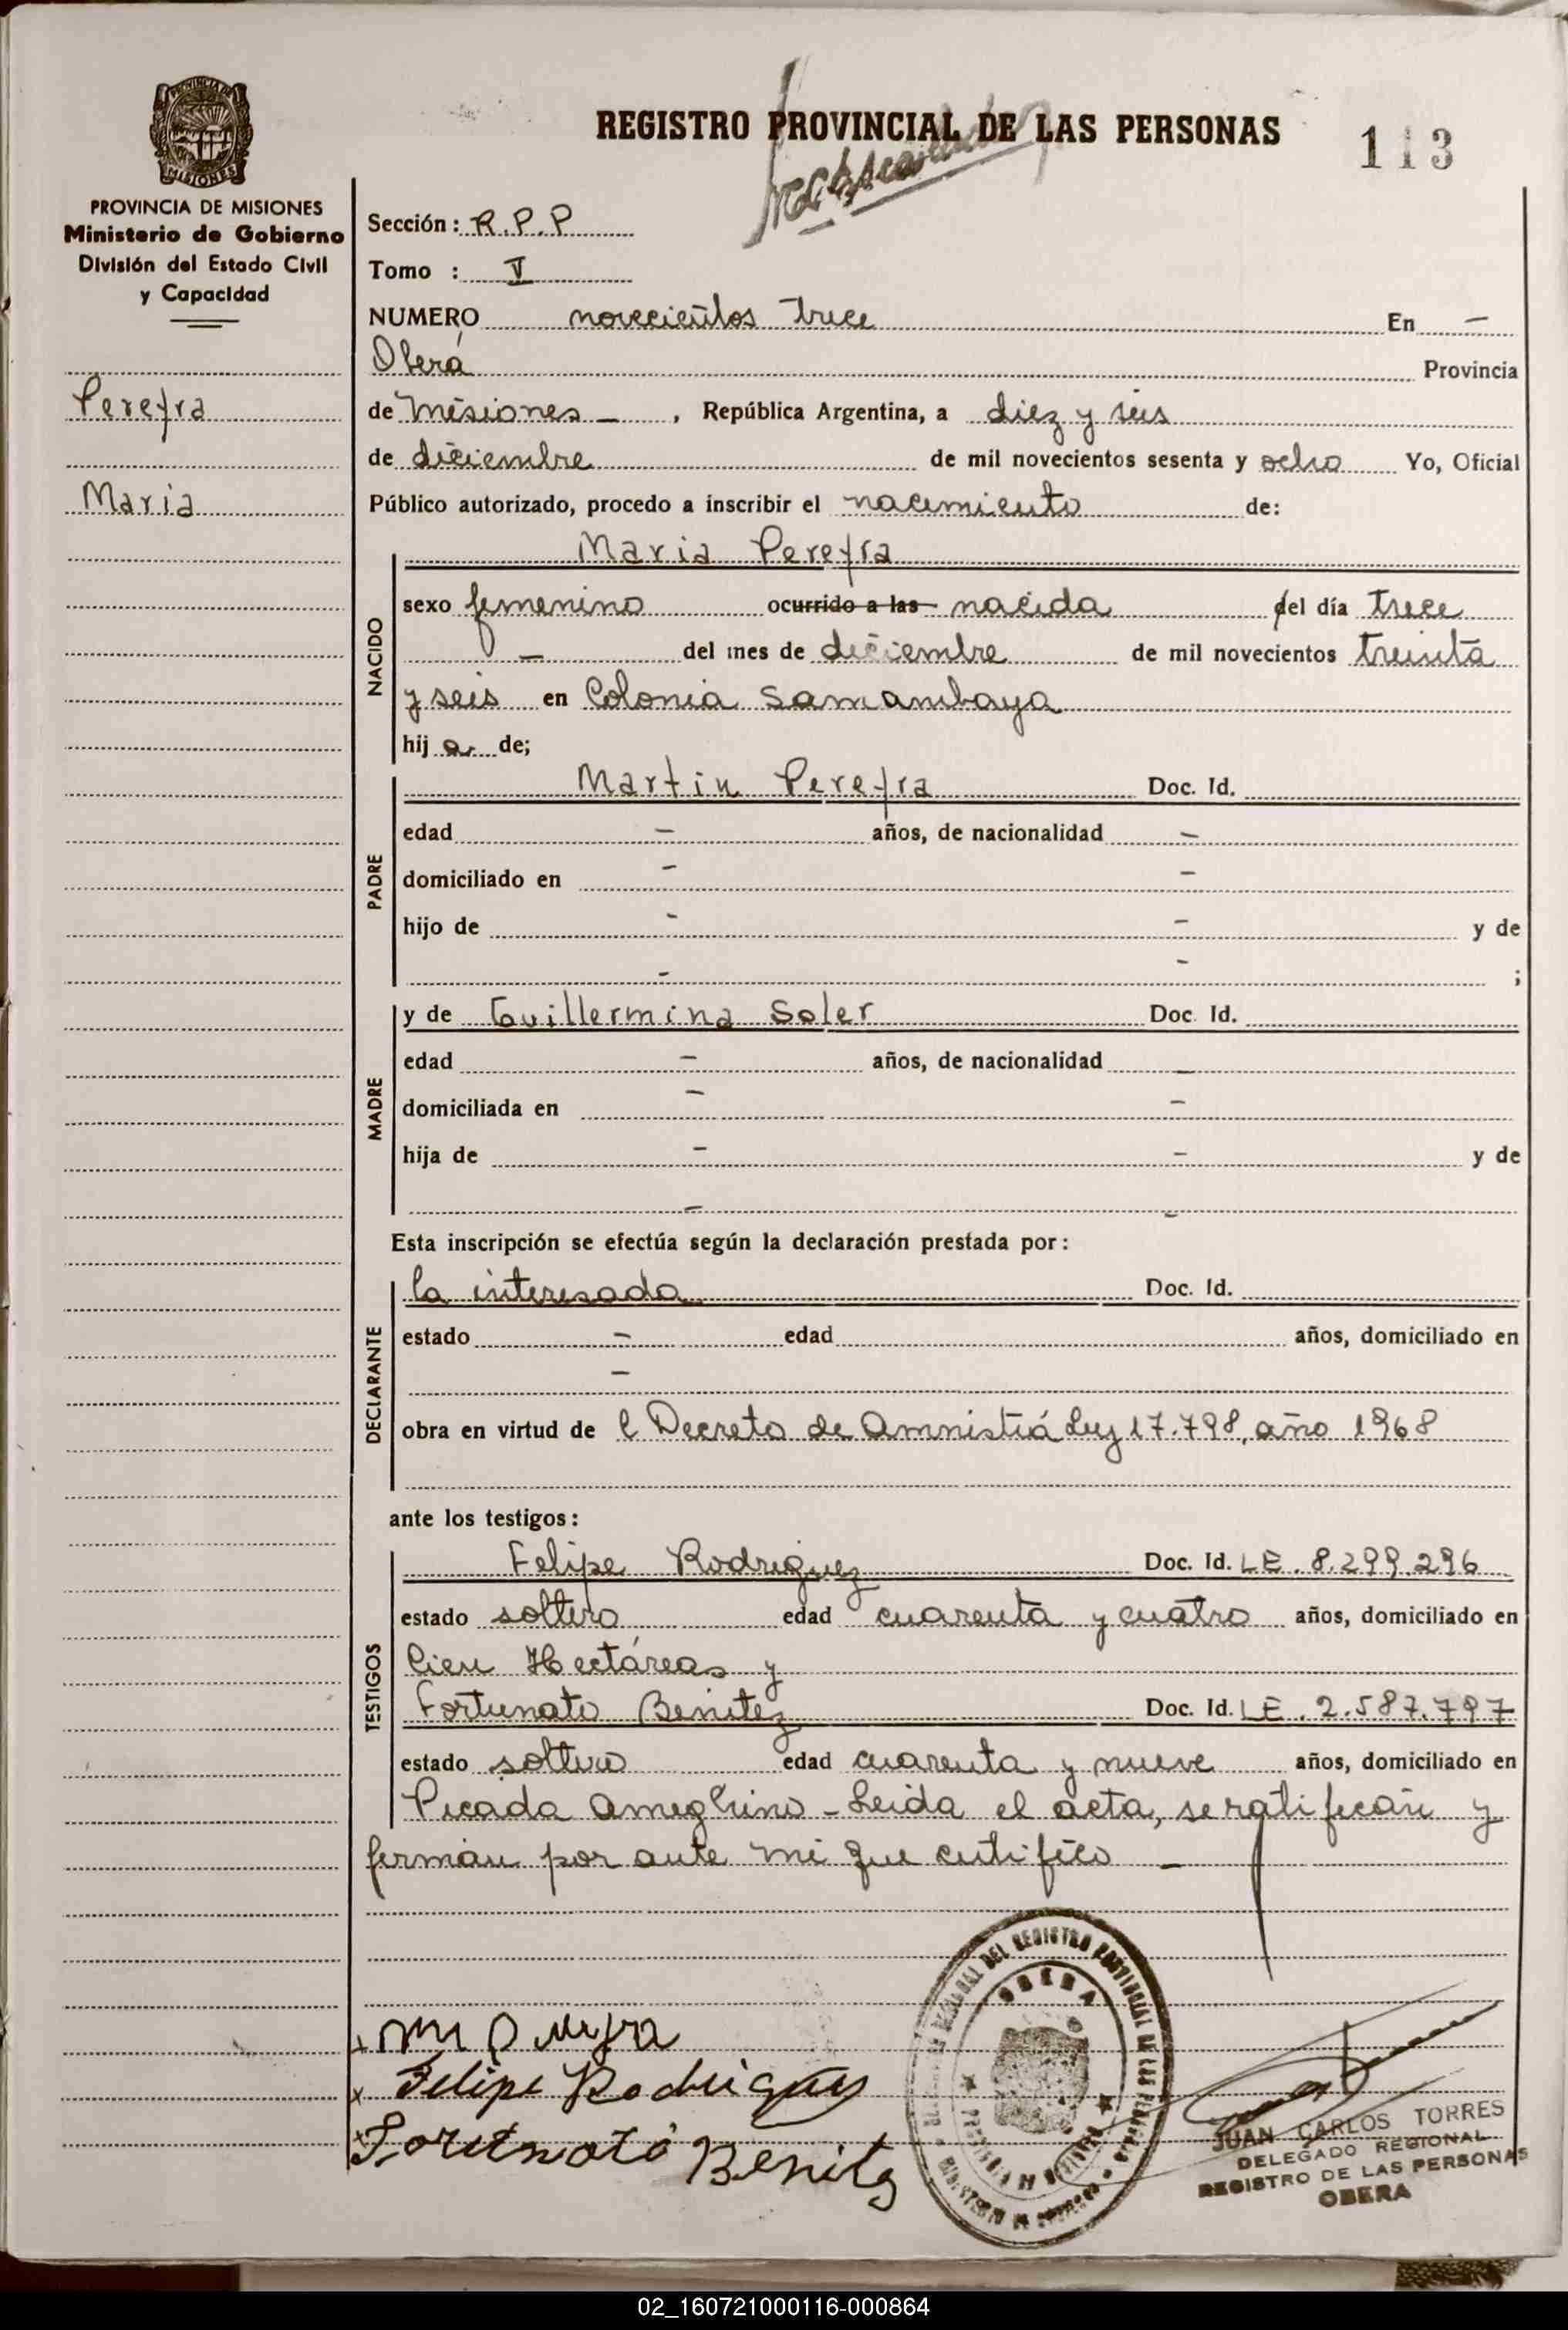 REGISTRO PROVINCIAL DE LAS PERSONAS
113
PROVINCIA DE
MISIONES
PROVINCIA DE MISIONES
Ministerio de Gobierno
División del Estado Civil
y Capacidad
Pereyra
Maria
Sección: R.P.P
Tomo : V
NUMERO novecientos trece En —
Oberá Provincia
de Misiones —, República Argentina, a diez y seis
de diciembre de mil novecientos sesenta y ocho Yo, Oficial
Público autorizado, procedo a inscribir el nacimiento de:
Maria Pereyra
NACIDO
sexo femenino ocurrido a las nacida del día trece
— del mes de diciembre de mil novecientos treinta
y seis en Colonia Samambaya
hij a de;
PADRE
Martin Pereyra Doc. Id.
edad — años, de nacionalidad —
domiciliado en — —
hijo de — — y de
— — ;
MADRE
y de Guillermina Soler Doc. Id.
edad — años, de nacionalidad —
domiciliada en — —
hija de — — y de
— —
Esta inscripción se efectúa según la declaración prestada por:
DECLARANTE
la interesada Doc. Id.
estado — edad años, domiciliado en
—
obra en virtud de l Decreto de Amnistiá Ley 17.798, año 1968
ante los testigos:
TESTIGOS
Felipe Rodriguez Doc. Id. LE. 8.299.296
estado soltero edad cuarenta y cuatro años, domiciliado en
Cien Hectáreas y
Fortunato Benitez Doc. Id. LE. 2.587.797
estado soltero edad cuarenta y nueve años, domiciliado en
Picada Ameghino - Leida el acta, se ratifican y
firman por ante mi que certifico —
Felipe Rodriguez
Fortunato Benitez
OBERA
JUAN CARLOS TORRES
DELEGADO REGIONAL
REGISTRO DE LAS PERSONAS
OBERA
02_160721000116-000864